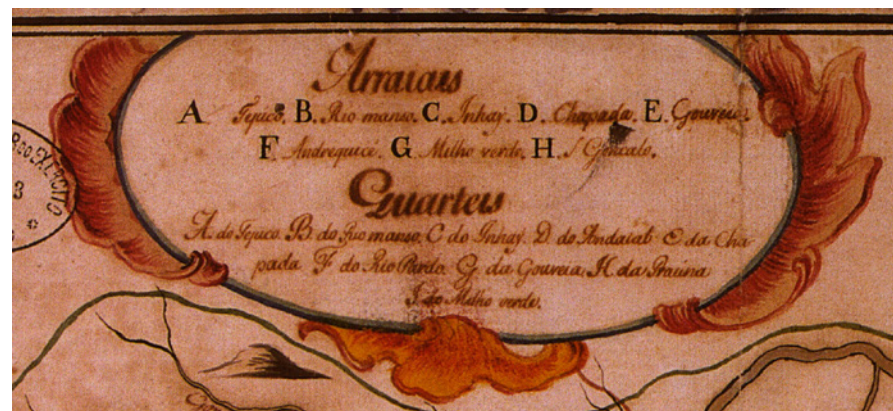 Arraiais
A Tejuco. B. Rio manso. C. Inhay. D. Chapada. E. Gouveia.
F. Andrequicé. G. Milho verde. H. S. Goncalo.
Quarteis
A. do Tejuco. B. do Rio manso. C do Inhay. D do Andaial E da Cha-
pada F do Rio Pardo. G da Gouveia H da Prauna
I do Milho verde.
EXERCITO